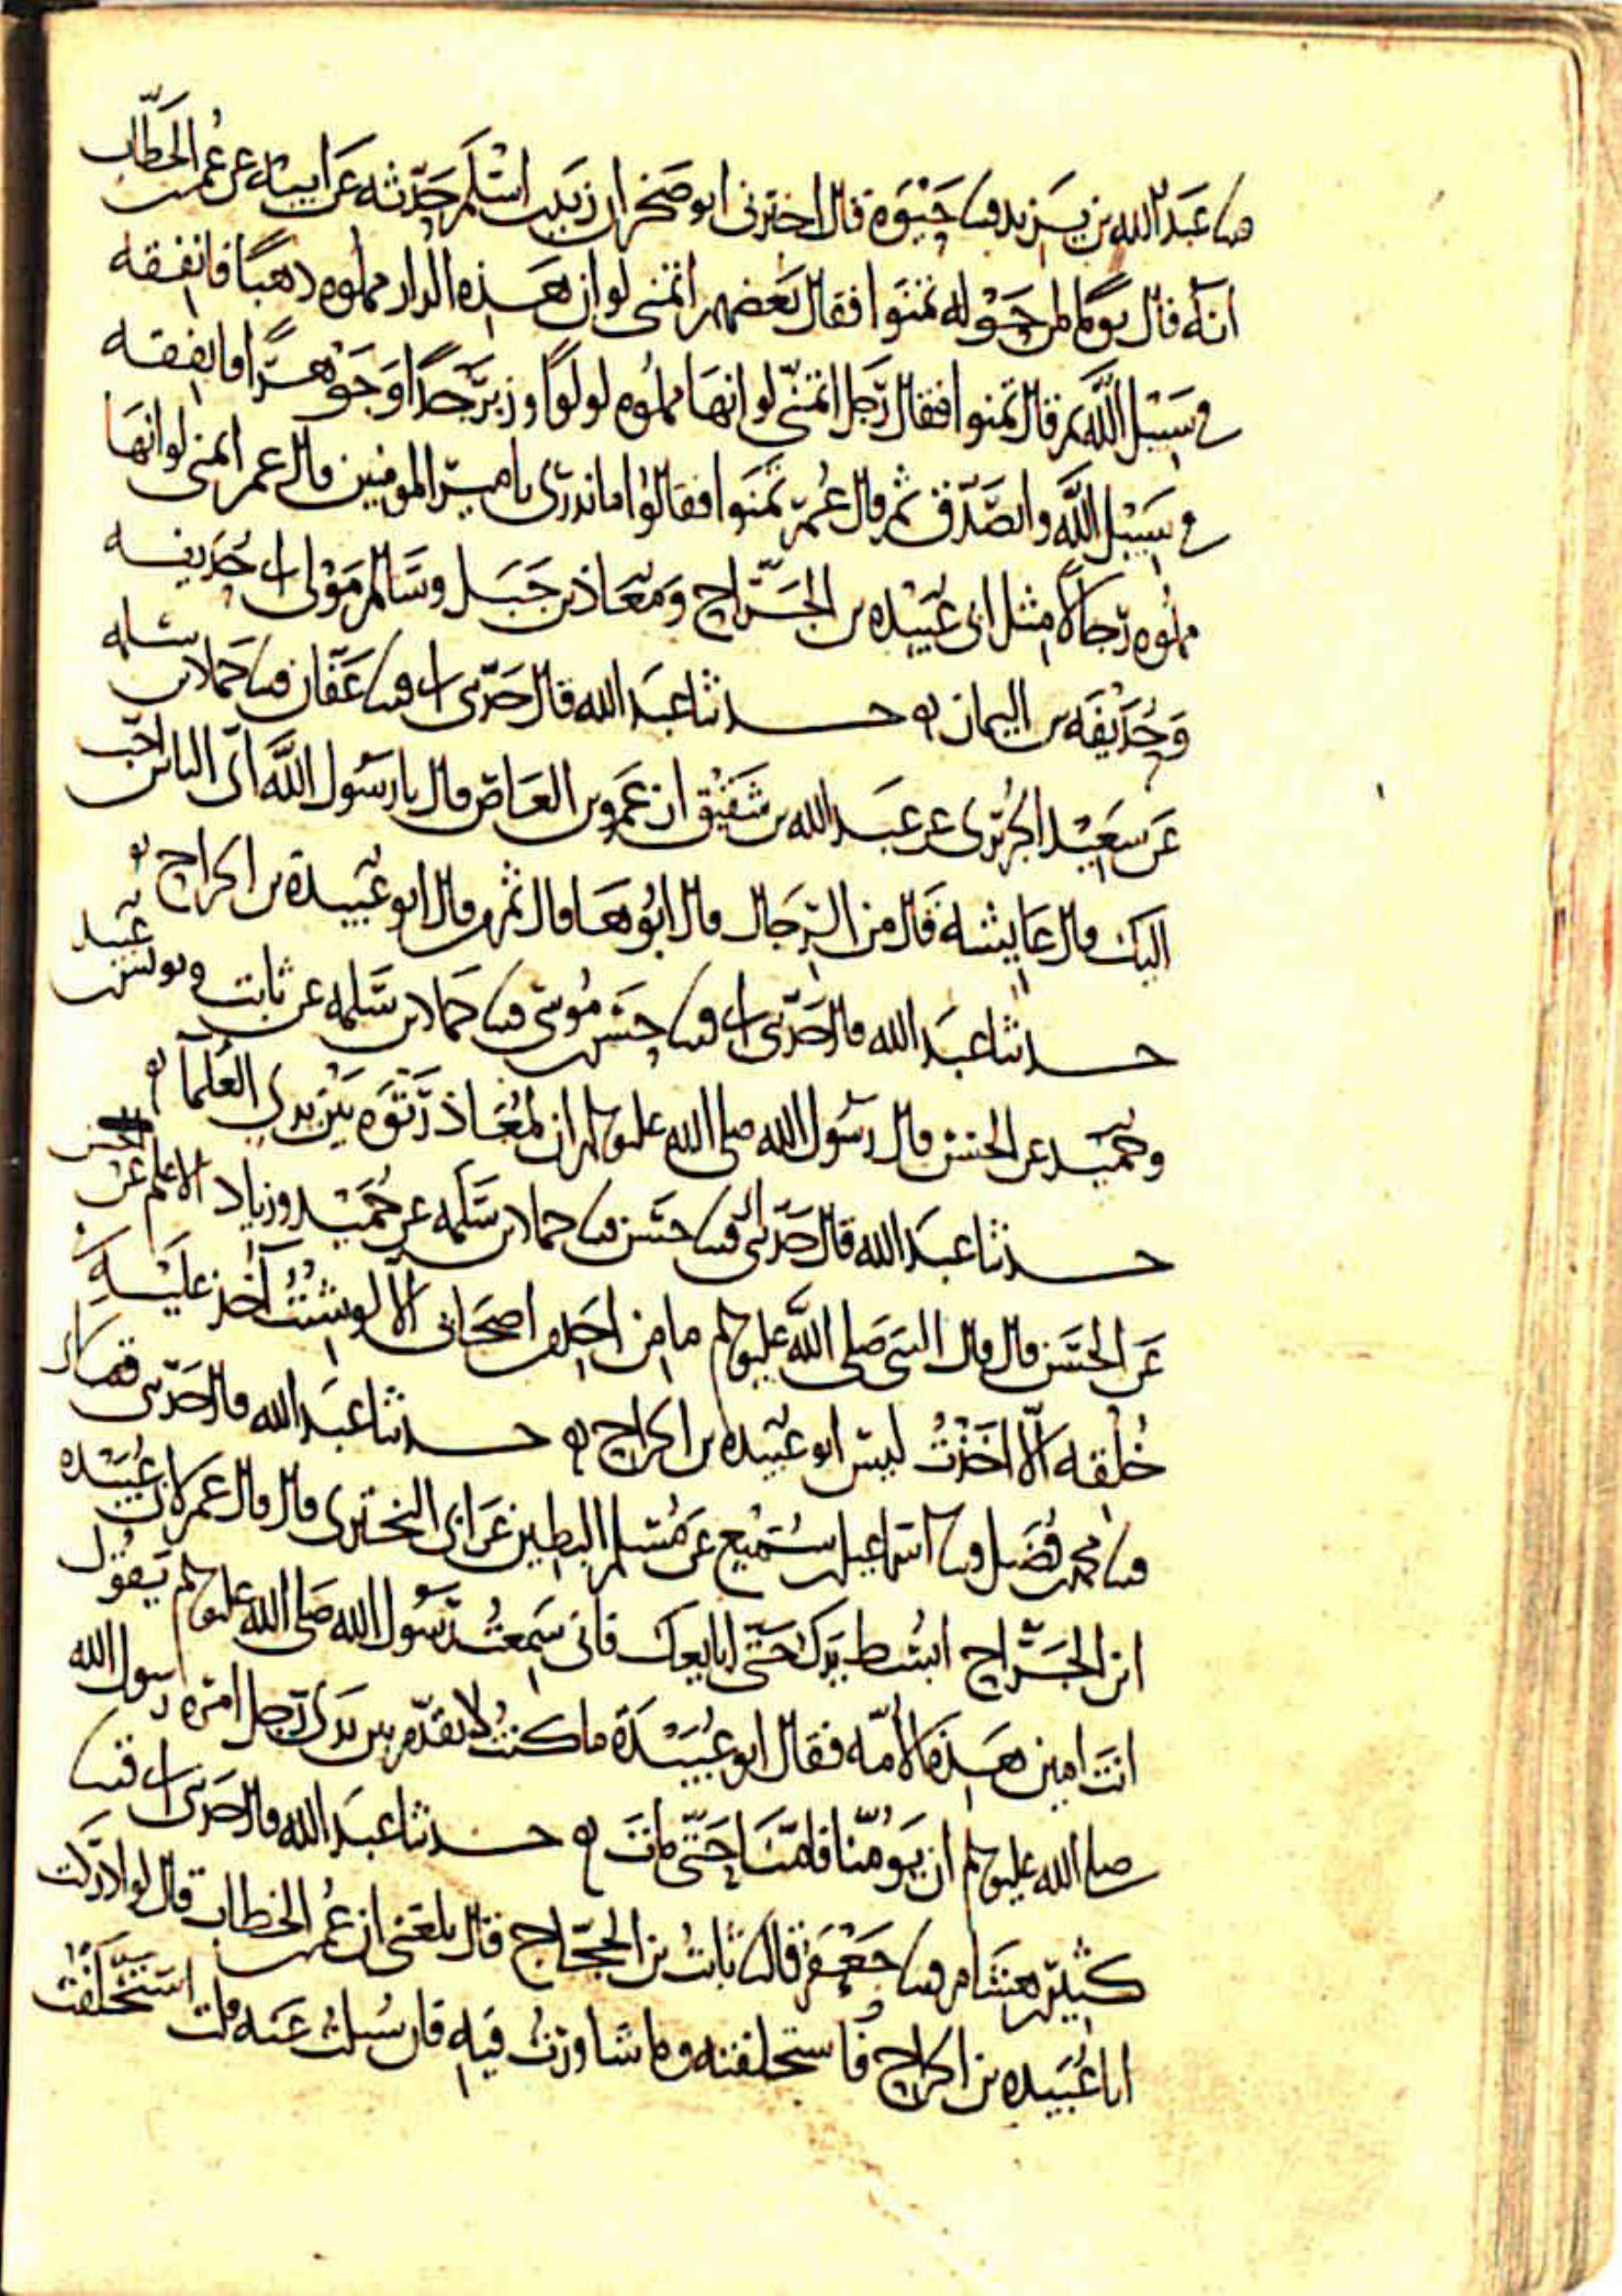 ثنا عبد الله بن يزيد قثنا حيوة قال اخبرني ابو صخر ان زيد بن اسلم حدثه عن ابيه عن عمر بن الخطاب
انه قال يوما لمن حوله تمنوا فقال بعضهم اتمنى لو ان هذه الدار مملوه ذهبا فانفقه
في سبيل الله ثم قال تمنوا فقال رجل اتمنى لو انها مملوه لولوا وزبرجدا وجوهرا فانفقه
في سبيل الله واتصدق ثم قال عمر تمنوا فقالوا ما ندرى يا امير المومنين قال عمر اتمنى لو انها
مملوه رجالا مثل ابي عبيده بن الجراح ومعاذ بن جبل وسالم مولى ابي حذيفه
وحذيفه بن اليمان حدثنا عبد الله قال حدثني ابي قثنا عفان قثنا حماد بن سلمه
عن سعيد الجريري عن عبد الله بن شقيق ان عمرو بن العاص قال يا رسول الله اي الناس احب
اليك قال عايشة قال من الرجال قال ابوها قال ثم من قال ابو عبيدة بن الجراح
حدثنا عبد الله قال حدثني ابي قثنا حسن بن موسى قثنا حماد بن سلمه عن ثابت ويونس بن عبيد
وحميد عن الحسن قال رسول الله صلى الله عليه وسلم ان لمعاذ رتوه بين يدي العلما
حدثنا عبد الله قال حدثني ابي قثنا حسن قثنا حماد بن سلمه عن حميد وزياد الاعلم عن
عن الحسن قال قال النبي صلى الله عليه وسلم ما من احد من اصحابي الا لو شئت آخذ عليه
خلقه الا اخذت ليس ابو عبيده بن الجراح حدثنا عبد الله قال حدثني ابي قثنا
قثنا محمد بن فضيل قثنا اسماعيل بن سميع عن مسلم البطين عن ابي البختري قال قال عمر لابي عبيده
ابن الجراح ابسط يدك حتى ابايعك فاني سمعت رسول الله صلى الله عليه وسلم يقول
انت امين هذه الامه فقال ابو عبيدة ما كنت لاتقدم بين يدي رجل امره رسول الله
صلى الله عليه وسلم ان يؤمنا فامنا حتى مات حدثنا عبد الله قال حدثني ابي قثنا
كثير بن هشام قثنا جعفر قال ثنا ثابت بن الحجاج قال بلغني ان عمر بن الخطاب قال لو ادركت
ابا عبيده بن الجراح فاستخلفته وما شاورت فيه فان سيلت عنه قلت استخلفت